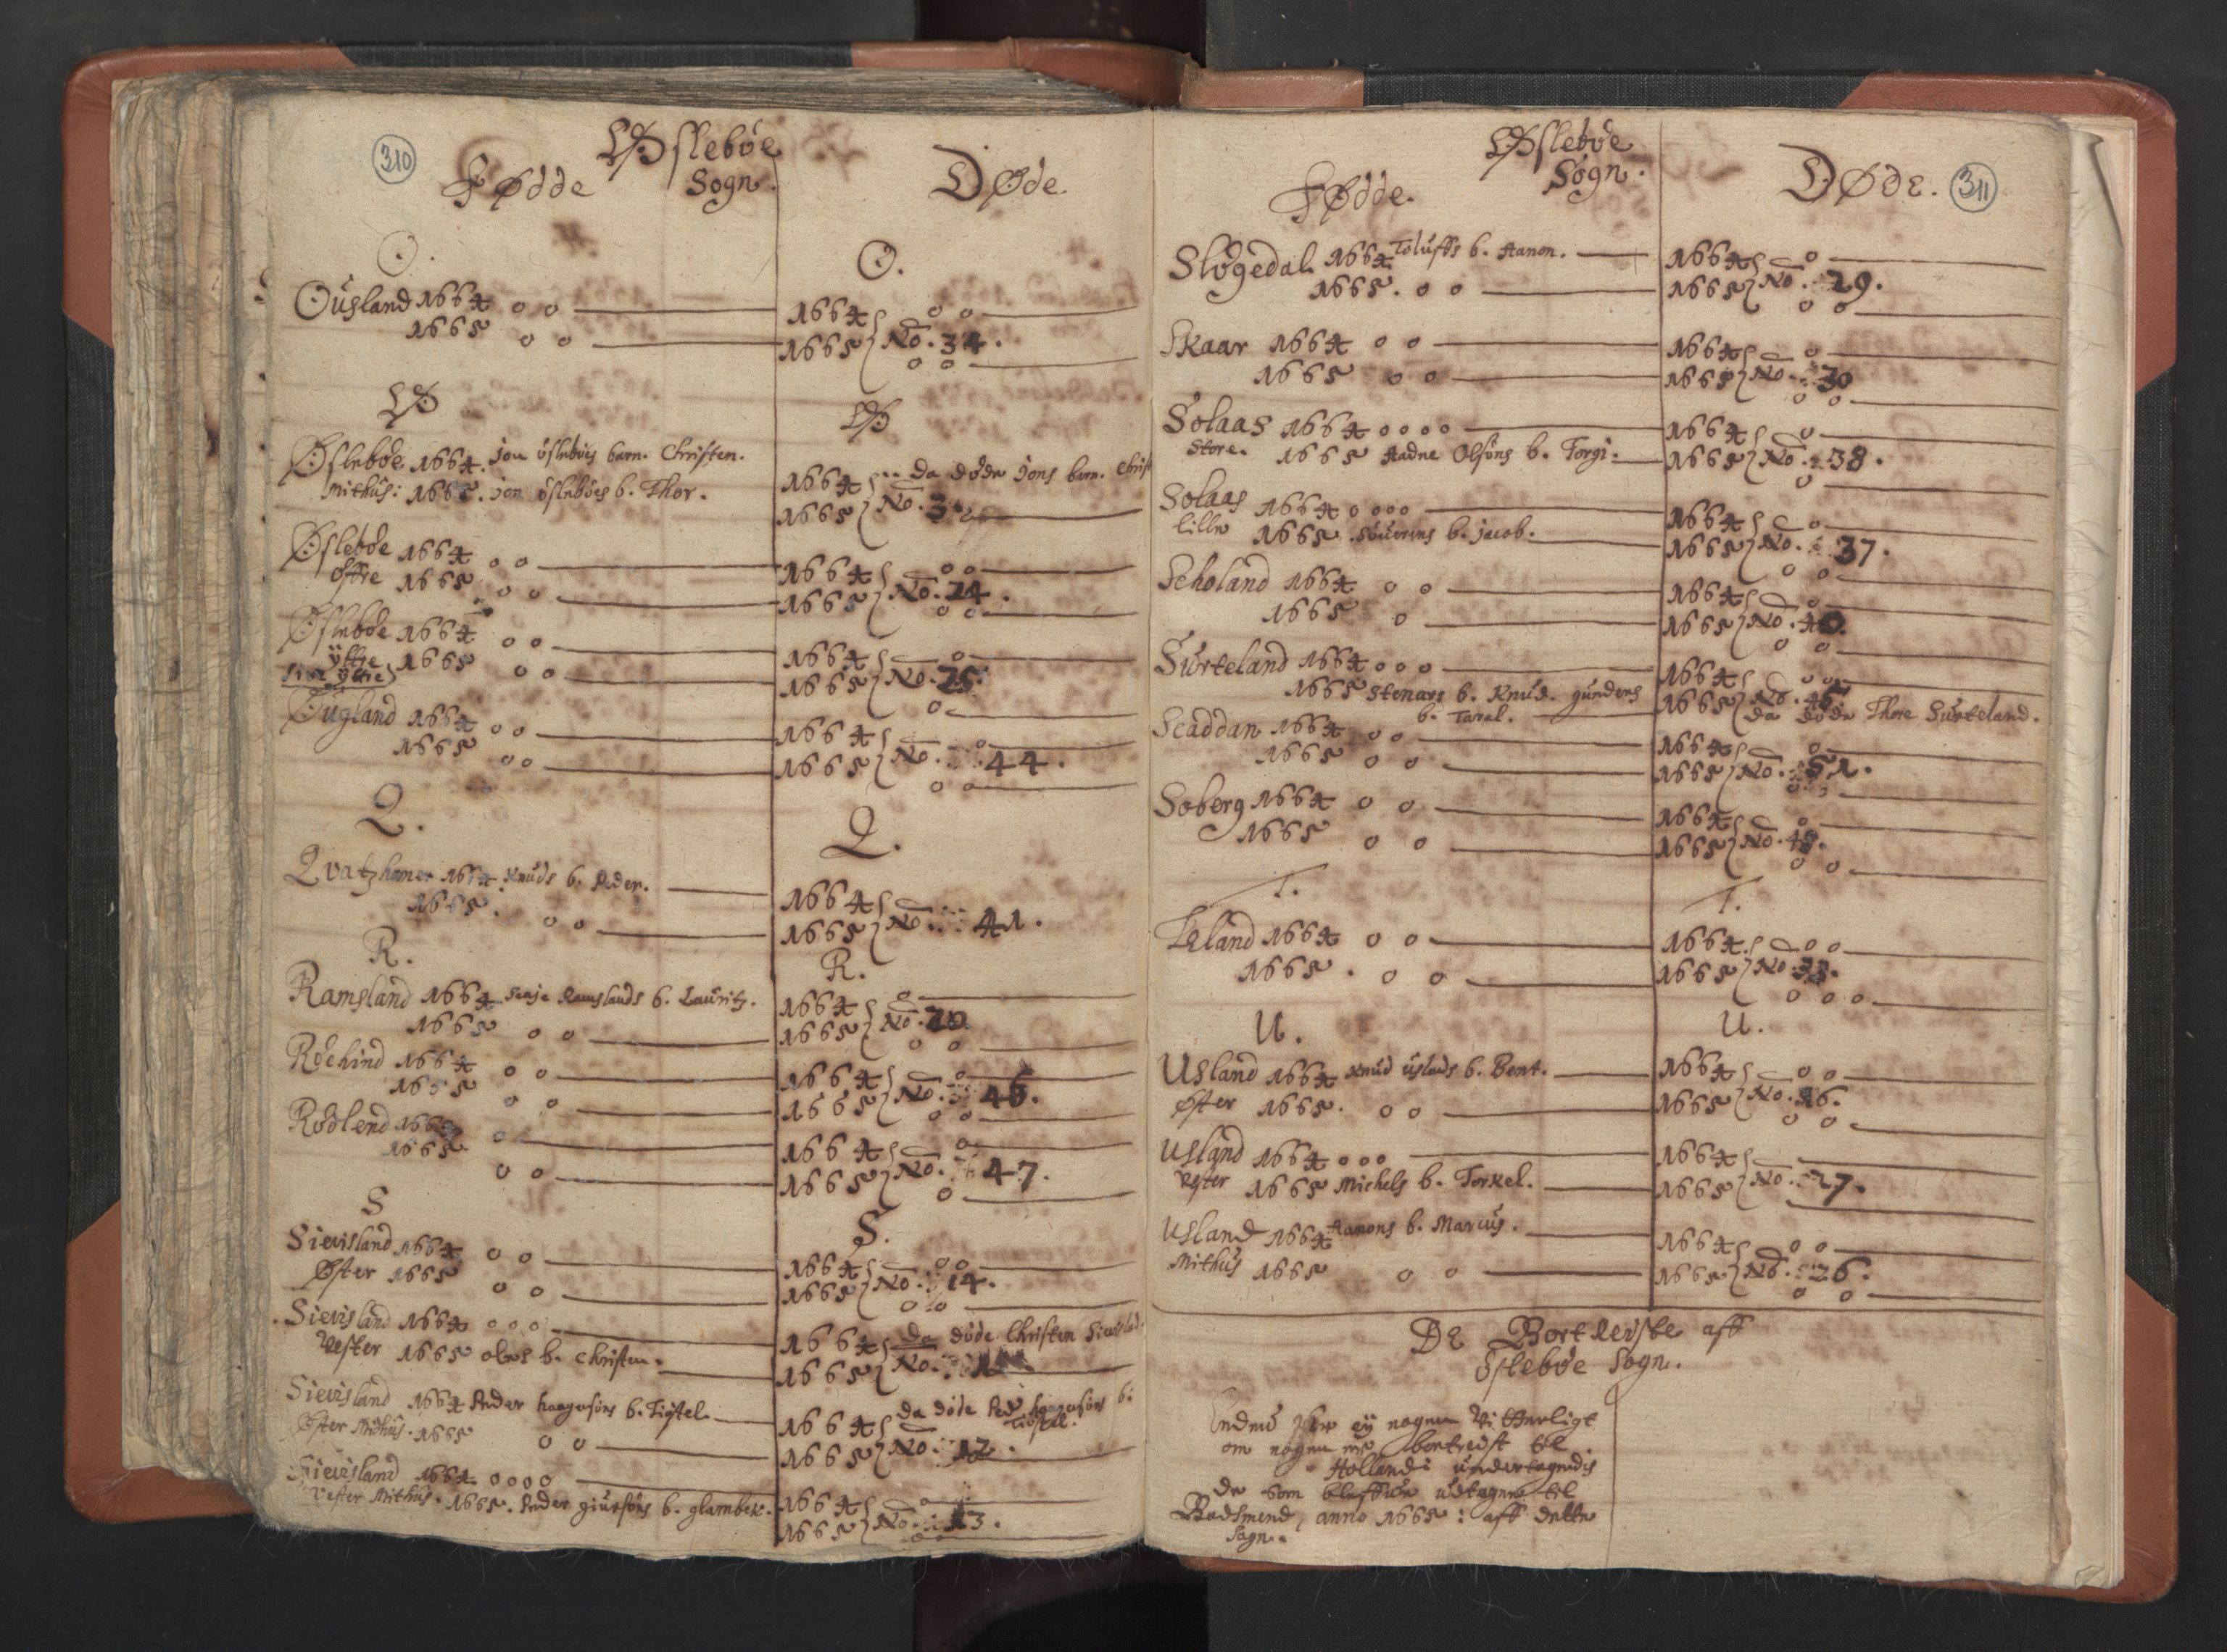 310
Øslebøe
Fødde Sogn.
O.
Oùsland 1664 o o
1665 o o
Ø
Øslebøe 1664. jon øslebøes barn. Christen.
Mithùs: 1665. jon øslebøes b. Thor.
Øslebøe 1664 o o
øffre 1665 o o
Øslebøe 1664 o o
ÿttre 1665 o o
Øùgland 1664 o o
1665 o o
Q.
Qvatzhømer 1664. Knùds b. Peder.
1665. o o
R.
Ramsland 1664 Ramslands b. Laùritz.
1665 o o
Røchind 1664 o o
1665 o o
Rødlend 1664 o
1665. o o
S
Sievisland 1664 o o
Øster 1665 o o
Sievisland 1664 o o o
Vester 1665 oles b. Christen.
Sievisland 1664 Peder haagensøns b. Tiøstel.
Øster Mithùs. 1665 o o
Sievisland 1664 o o o o
Vester Mithùs. 1665. Peder giùrsøns b. glambek.
Døde.
O.
1664 o o
1665 No. 34.
o o
Ø
1664 da døde jons barn. Christ
1665 No. 3
1664 o o
1665 No. 24.
o o
1664 o
1665 No. 25.
o
1664 o
1665 No. 44.
o o
Q.
1664
1665 No. 41.
R.
1664 o
1665 No. 20.
o o
1664 o
1665 No. 46.
o o
1664 o
1665 No. 47.
o
S.
1664 o o
1665 No. 14.
o o
1664 da døde Christen
1665 No.
1664 da døde Ped haagensøns b:
Tiøstel.
1665 No. 12.
1664 o
1665 No. 13.
o o
Øslebøe
Fødde. Sogn.
Sløgedal 1664 Tolùffs b. Aanon.
1665. o o
Skaar 1664 o o
1665 o o
Solaas 1664 o o o o
Store. 1665 Aadne Olsøns b. Torgi.
Solaas 1664 o o o o
lille 1665 Søùrens b. jacob.
Scholand 1664 o o
1665 o
Sùrteland 1664 o o o
1665 Stenars b. Knùd. gùnders
b. Taral.
Scaddan 1664 o o
1665 o o
Soberg 1664 o o
1665 o o
T.
Teland 1664 o o
1665. o o
U.
Usland 1664 Knùd ùslands b. Bent.
Øster 1665. o o
Usland 1664 o o o
Vester 1665 Michels b. Torkel.
Usland 1664 Aanons b. Marcùs.
Mithùs 1665 o o
Døde. 311
1664 o
1665 No. 29.
o o
1664 o
1665 No. 30
o o
1664 o
1665 No. 38.
o
1664 o
1665 No. 37.
o o
1664 o
1665 No. 40.
o o
1664 o o
1665 No. 45
da døde Thore Sùrteland.
1664 o
1665 No. 51.
1664 o
1665 No. 48.
o o
T.
1664. o o
1665 No. 33.
o o o
U.
1664 o o
1665 No. 16.
o o
1664
1665 No. 27.
1664 o o
1665 No. 26.
o o
De Bortreÿste aff
Øslebøe Sogn.
Endnù eÿ nogen Vitterligt
om nogen bortreÿst til
Hollandt ùndertagendis
de som bleffùe ùdtagne til
Baadsmend, anno 1665: aff dette
Sogn.